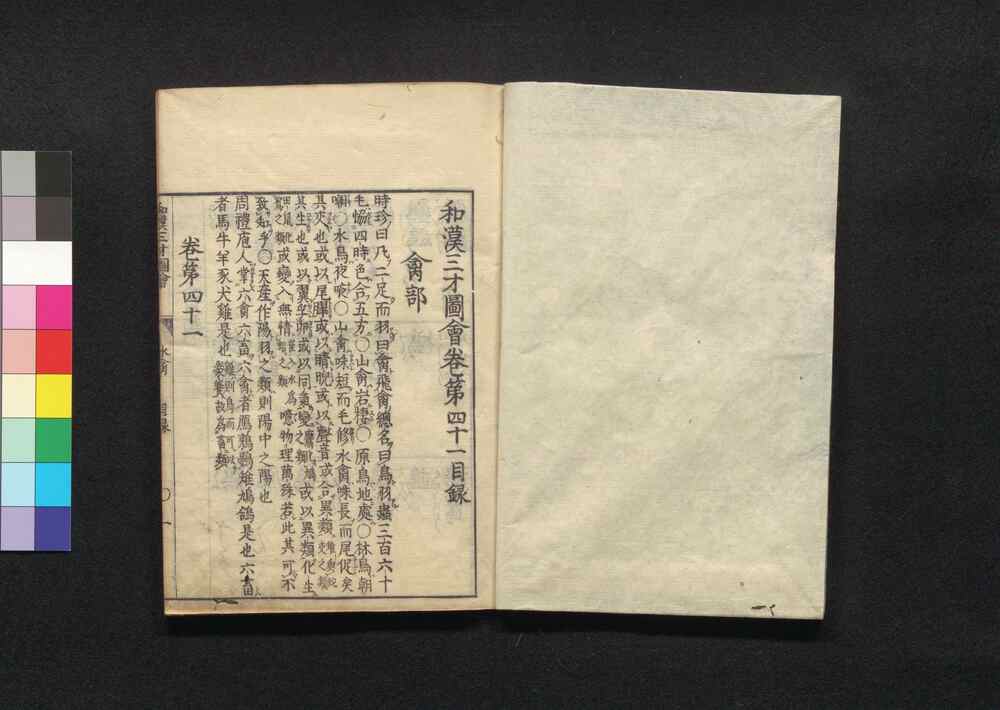 和漢三才圖會卷第四十一目録
禽部
時珍曰凡二足而羽曰禽飛禽總名曰鳥羽蟲三百六十
毛恊四時色合五方〇山禽岩棲〇原鳥地處〇林鳥朝
嘲〇水鳥夜唳〇山禽咮短而尾修水禽咮長而尾促矣
其交也或以尾臎或以睛睨或以聲音或合異類
其生也或以翼孚卵或以同氣變之類或以異類化生
之類或變入無情之類噫物理萬殊若此其可不
致知乎〇天産作陽羽之類則陽中之陽也
周禮庖人掌六禽六畜六禽者鴈鶉鷃雉鳩鴿是也六畜
者馬牛羊豕犬雞是也雞則鳥而可
畜養故為畜類
卷第四十一
和漢三才圖會
水禽
目録
〇一